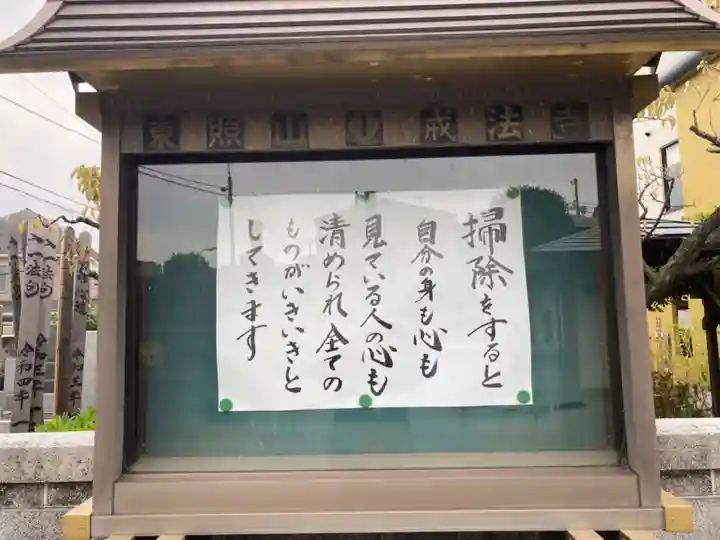 東照山 成法寺
掃除をすると
自分の身も心も
見ている人の心も
清められ全ての
ものがいきいきと
してきます
令和四年
令和三年
令和三年